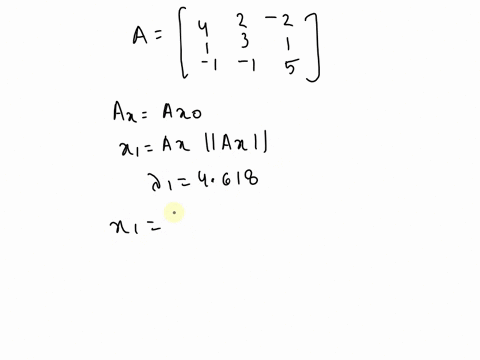 A = [ 4 2 -2
1 3 1
-1 -1 5 ]
Ax = Ax0
x1 = Ax ||Ax||
λ1 = 4.618
x1 =